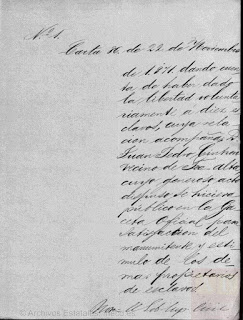 Nº 1.
Carta Nº. 22 de Noviembre
de 1871 dando cuen
ta de haber dado
la libertad volunta
riamente a diez es
clavos, cuya rela
cion acompaña, D
Juan Pedro
vecino de alta
cuyo generoso acto
dispuso se hiciera
publico en la Ga
ceta Oficial para
satisfaccion del
manumitente y esti
mulo de los de
mas propietarios
de esclavos
© Archivos Estatales